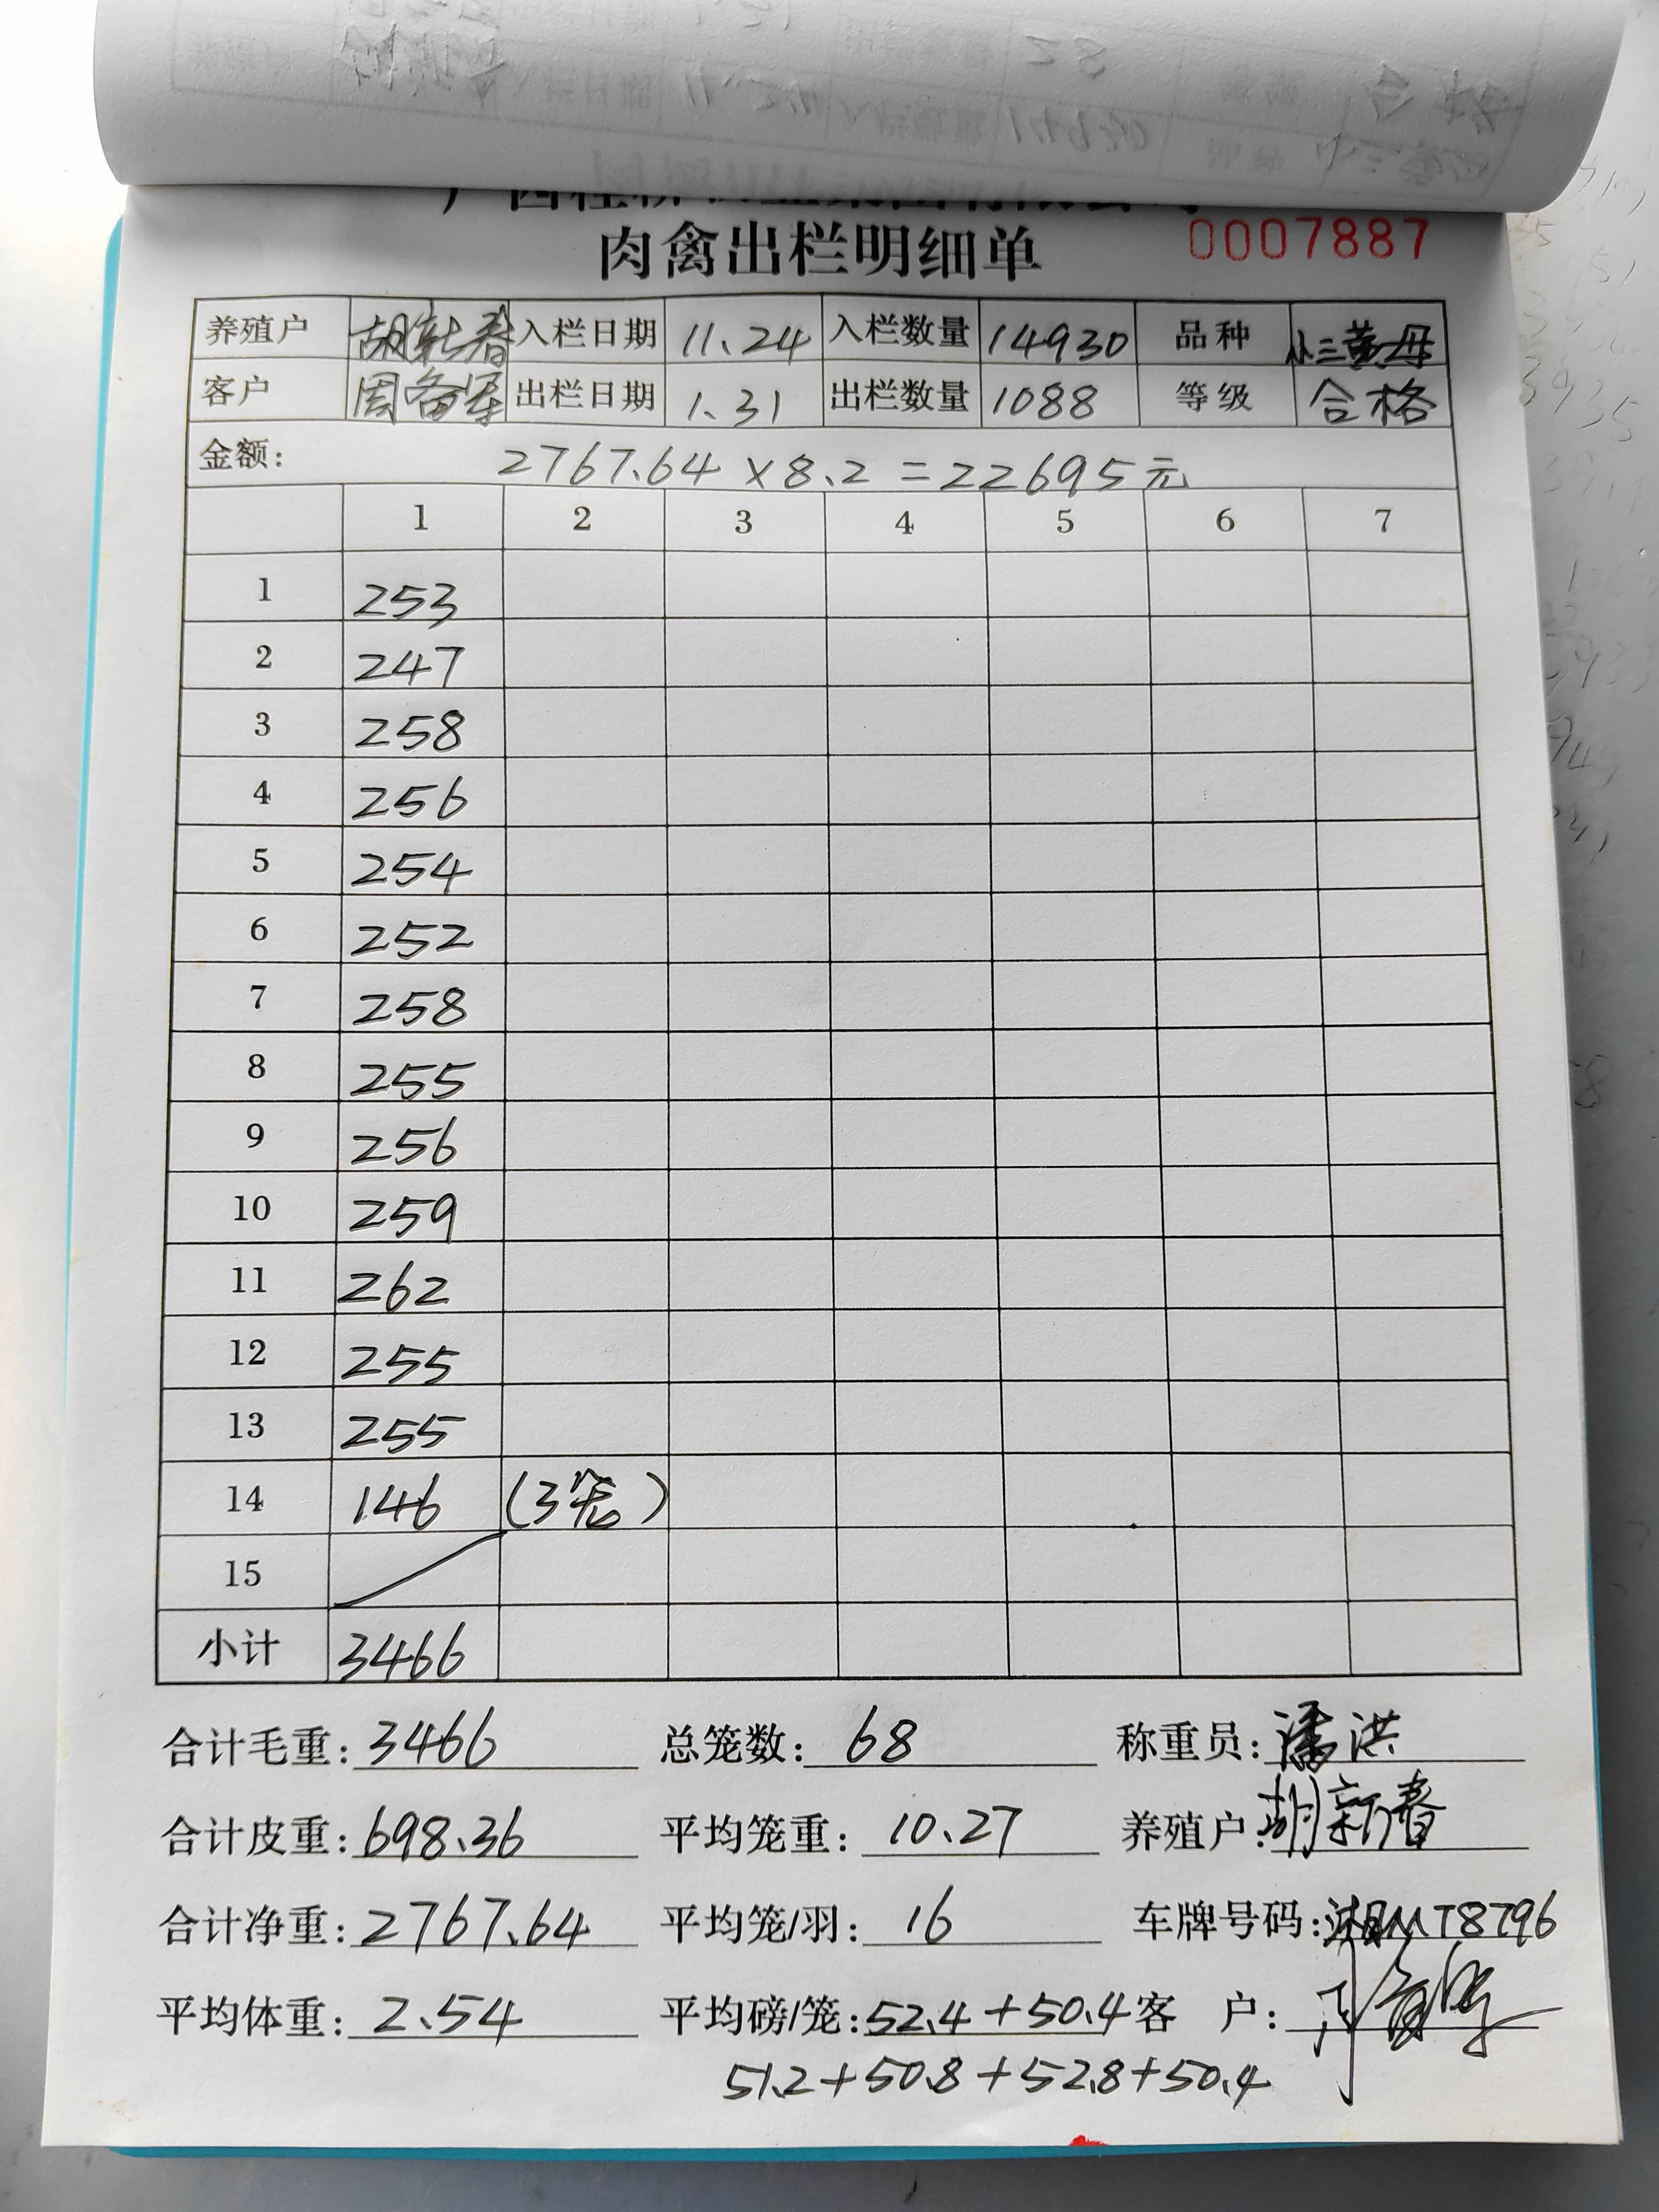 肉禽出栏明细单 0007887
养殖户 胡新春 入栏日期 11.24 入栏数量 14930 品种 小三黄母
客户 周备军 出栏日期 1.31 出栏数量 1088 等级 合格
金额: 2767.64 × 8.2 = 22695元
1 2 3 4 5 6 7
1 253
2 247
3 258
4 256
5 254
6 252
7 258
8 255
9 256
10 259
11 262
12 255
13 255
14 146 (3笼)
15
小计 3466
合计毛重: 3466 总笼数: 68 称重员: 潘洪
合计皮重: 698.36 平均笼重: 10.27 养殖户: 胡新春
合计净重: 2767.64 平均笼/羽: 16 车牌号码: 湘MT8796
平均体重: 2.54 平均磅/笼: 52.4+50.4 客 户:
51.2+50.8+52.8+50.4